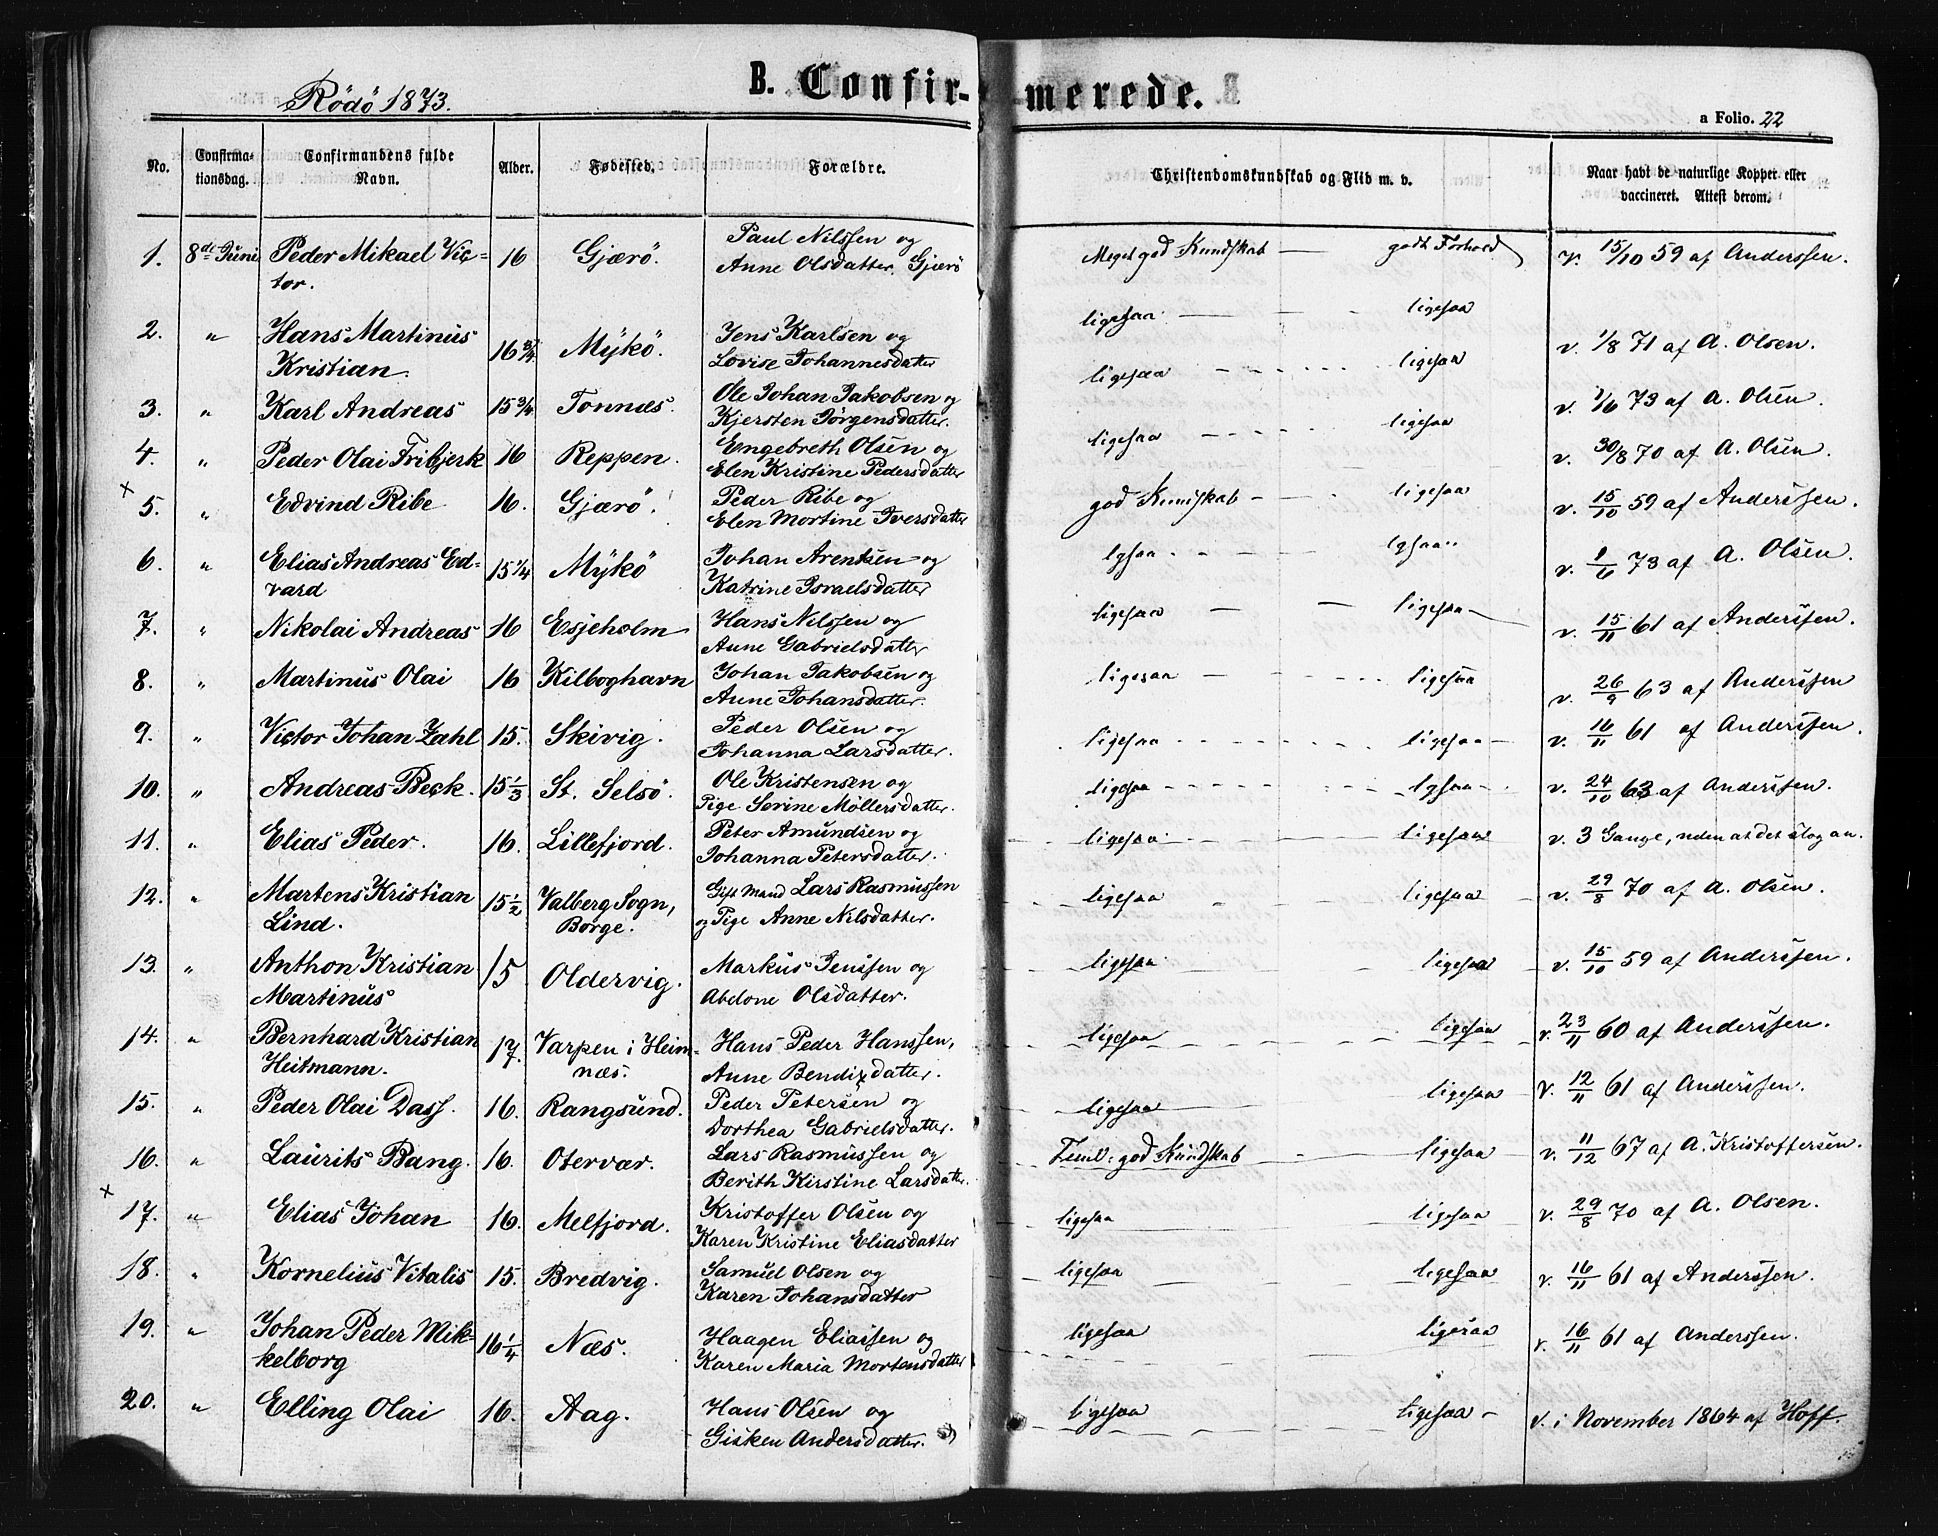 Rödö 1873.
B. Confir- -merede.
a Folio. 22
No. Confirma-tionsdag. Confirmandens fulde Navn. Alder. Fødested. Forældre. Christendomskundskab og Flid m. v. Naar havt de naturlige Kopper eller vaccineret. Attest derom.
1. 8de Juni Peder Mikael Vic- 16 Gjærö. Paul Nilssen og Meget god Kundskab — godt Forhold v. 15/10 59 af Anderssen.
tor. Anne Olsdatter. Gjærö
2. " Hans Martinus 16 3/4 Mykö. Jens Karlsen og ligesaa — ligesaa v. 1/8 71 af A. Olsen.
Kristian. Lovise Johannesdatter
3. " Karl Andreas 15 3/4 Tonnæs. Ole Johan Jakobsen og ligesaa - - - ligesaa v. 1/6 73 af A. Olsen.
Kjersten Jörgensdatter.
4. " Peder Olai Fribjerk 16 Reppen. Engebreth Olsen og ligesaa - - - ligesaa v. 30/8 70 af A. Olsen.
Elen Kristine Pedersdatter
× 5. " Edvind Ribe 16. Gjærö. Peder Ribe og god Kundskab - - ligesaa v. 15/10 59 af Anderssen.
Elen Mortine Iversdatter
6. " Elias Andreas Ed- 15 1/4 Mykö Johan Arentsen og lgsaa - - - lgsaa v. 1/6 73 af A. Olsen.
vard Katrine Israelsdatter
7. " Nikolai Andreas 16 Esjeholm Hans Nilssen og ligesaa — — ligesaa v. 15/11 61 af Anderssen.
Anne Gabrielsdatter
8. " Martinus Olai 16 Kilboghavn Johan Jakobsen og ligesaa — - - - ligesaa v. 26/9 63 af Anderssen
Anne Johansdatter.
9. " Victor Johan Zahl 15. Skivig. Peder Olsen og ligesaa - - - ligesaa — v. 16/11 61 af Anderssen.
Johanna Larsdatter.
10. " Andreas Beck. 15 1/3 St. Selsö. Ole Kristensen og ligesaa - - - lgsaa v. 24/10 63 af Anderssen.
Pige Serine Möllersdatter.
11. " Elias Peder. 16. Lillefjord. Peter Amundsen og ligesaa - - - ligesaa v. 3 Gange, uden at det slog an.
Johanna Petersdatter.
12. " Martens Kristian 15 1/2 Valberg Sogn, Gift Mand Lars Rasmussen ligesaa - - ligesaa v. 29/8 70 af A. Olsen.
Lind. Borge. og Pige Anne Nilsdatter.
13. " Anthon Kristian 15 Oldervig. Markus Jenssen og ligesaa - - ligesaa v. 15/10 59 af Anderssen.
Martinus Abelone Olsdatter.
14. " Bernhard Kristian 17. Varpen i Heim- Hans Peder Hanssen, ligesaa - - ligesaa v. 23/11 60 af Anderssen.
Heitmann. næs. Anne Bendixdatter.
15. " Peder Olai Dass. 16. Rangsund. Peder Petersen og ligesaa — — ligesaa v. 12/11 61 af Anderssen.
Dorthea Gabrielsdatter.
16. " Laurits Bang. 16. Otervær. Lars Rasmussen og Teml: god Kundskab ligesaa v. 11/12 67 af A. Kristoffersen.
Berith Kirstine Larsdatter.
× 17. " Elias Johan 16. Melfjord. Kristoffer Olsen og ligesaa — — ligesaa v. 29/8 70 af A. Olsen.
Karen Kristine Eliasdatter
18. " Kornelius Vitalis 15. Bredvig. Samuel Olsen og ligesaa — — ligesaa v. 16/11 61 af Anderssen.
Karen Johansdatter
19. " Johan Peder Mik- 16 1/4 Næs. Haagen Eliassen og ligesaa — ligesaa v. 16/11 61 af Anderssen.
kelborg Karen Maria Mortensdatter
20. " Elling Olai 16. Aag. Hans Olsen og ligesaa — ligesaa - v. i November 1864 af Hoff.
Gisken Andersdatter.